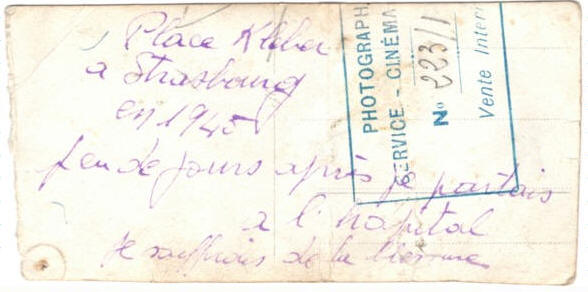 Place Kleber
a Strasbourg
en 1945
peu de jours après je partais
a l'hopital
Je souffrais de la
PHOTOGRAPH
SERVICE - CINÉMA
No 223/1
Vente Inter